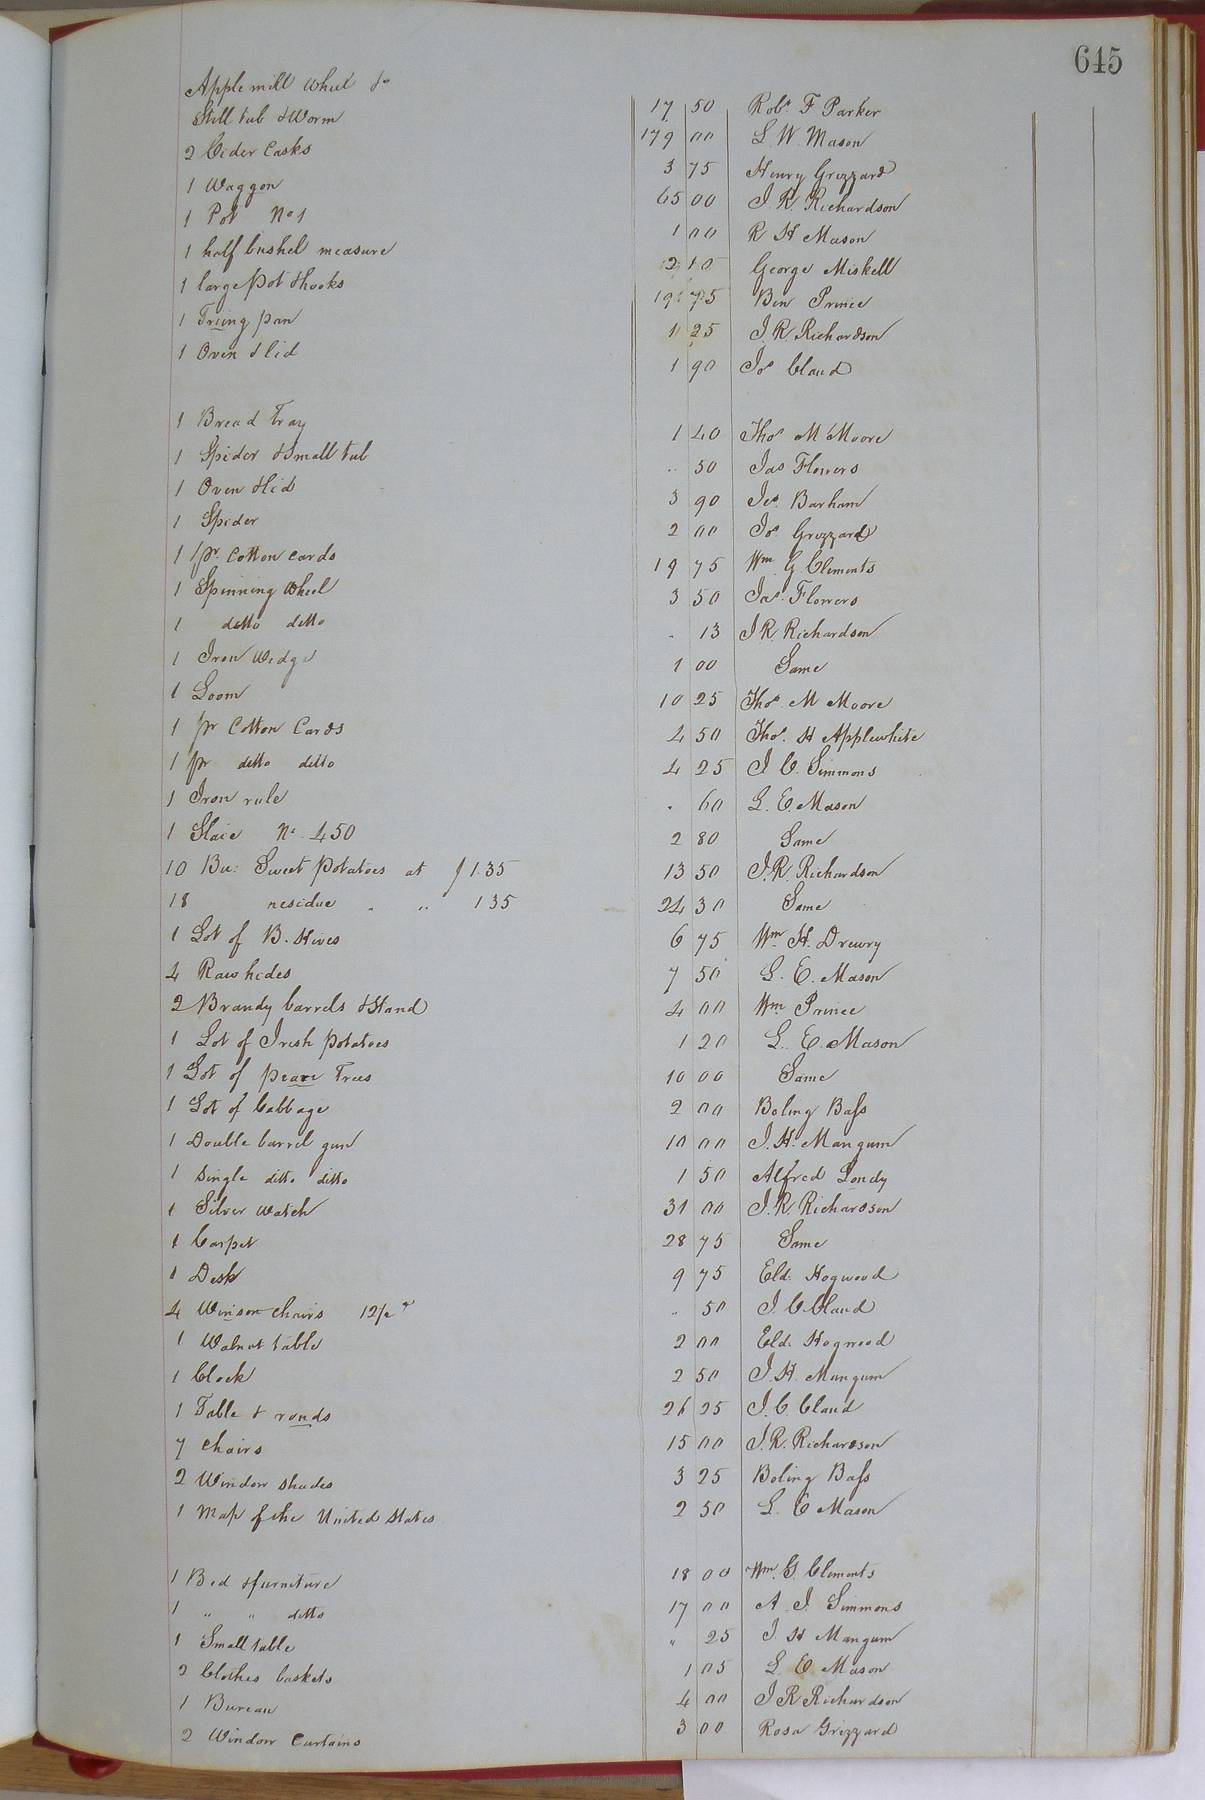 645
Apple mill wheel &c 17 50 Robt. F Parker
Still tub & Worm 179 00 L. W. Mason
2 Cider Casks 3 75 Henry Grizzard
1 Waggon 65 00 J. R. Richardson
1 Pot No 1 1 00 R H Mason
1 half bushel measure 2 10 George Miskell
1 large Pot & hooks 19 75 Ben Prince
1 Friing pan 11 25 J. R. Richardson
1 Oven & lid 1 90 Jos Claud
1 Bread Tray 1 40 Thos M Moore
1 Spider & Small tub .. 50 Jas Flowers
1 Oven & lid 3 90 Jos. Barham
1 Spider 2 00 Jos. Grizzard
1 pr. Cotton cards 19 75 Wm G Clements
1 Spinning Wheel 3 50 Jas. Flowers
1 ditto ditto . 13 J R. Richardson
1 Iron Wedge 1 00 Same
1 Loom 10 25 Thos. M Moore
1 pr Cotton Cards 4 50 Thos. H Applewhite
1 pr ditto ditto 4 25 J. C. Simmons
1 Iron rule . 60 L. E. Mason
1 Slaie No. 450 2 80 Same
10 Bu: Sweet Potatoes at $1.35 13 50 J. R. Richardson
18 residue . .. 135 24 30 Same
1 Lot of B. Hives 6 75 Wm. H. Drewry
4 Raw hides 7 50 L. E. Mason
2 Brandy barrels & Stand 4 00 Wm Prince
1 Lot of Irish Potatoes 1 20 L. E. Mason
1 Lot of peare Trees 10 00 Same
1 Lot of Cabbage 2 00 Boling Bass
1 Double barrel gun 10 00 J. H. Mangum
1 Single ditto ditto 1 50 Alfred Londy
1 Silver Watch 31 00 J. R. Richardson
1 Carpet 28 75 Same
1 Desk 9 75 Eld. Hogwood
4 Winson Chairs 12/2 .. 50 J. C. Claud
1 Walnut table 2 00 Eld. Hogwood
1 Clock 2 50 J. H. Mangum
1 Table & rounds 26 25 J. C. Claud
7 Chairs 15 00 J. R. Richardson
2 Window Shades 3 25 Boling Bass
1 Map of the United States 2 50 L. E Mason
1 Bed & furniture 18 00 Wm. G. Clements
1 " " ditto 17 00 A. J. Simmons
1 Small table " 25 J. H Mangum
2 Clothes baskets 1 05 L. E. Mason
1 Bureau 4 00 J R Richardson
2 Window Curtains 3 00 Rosa Grizzard